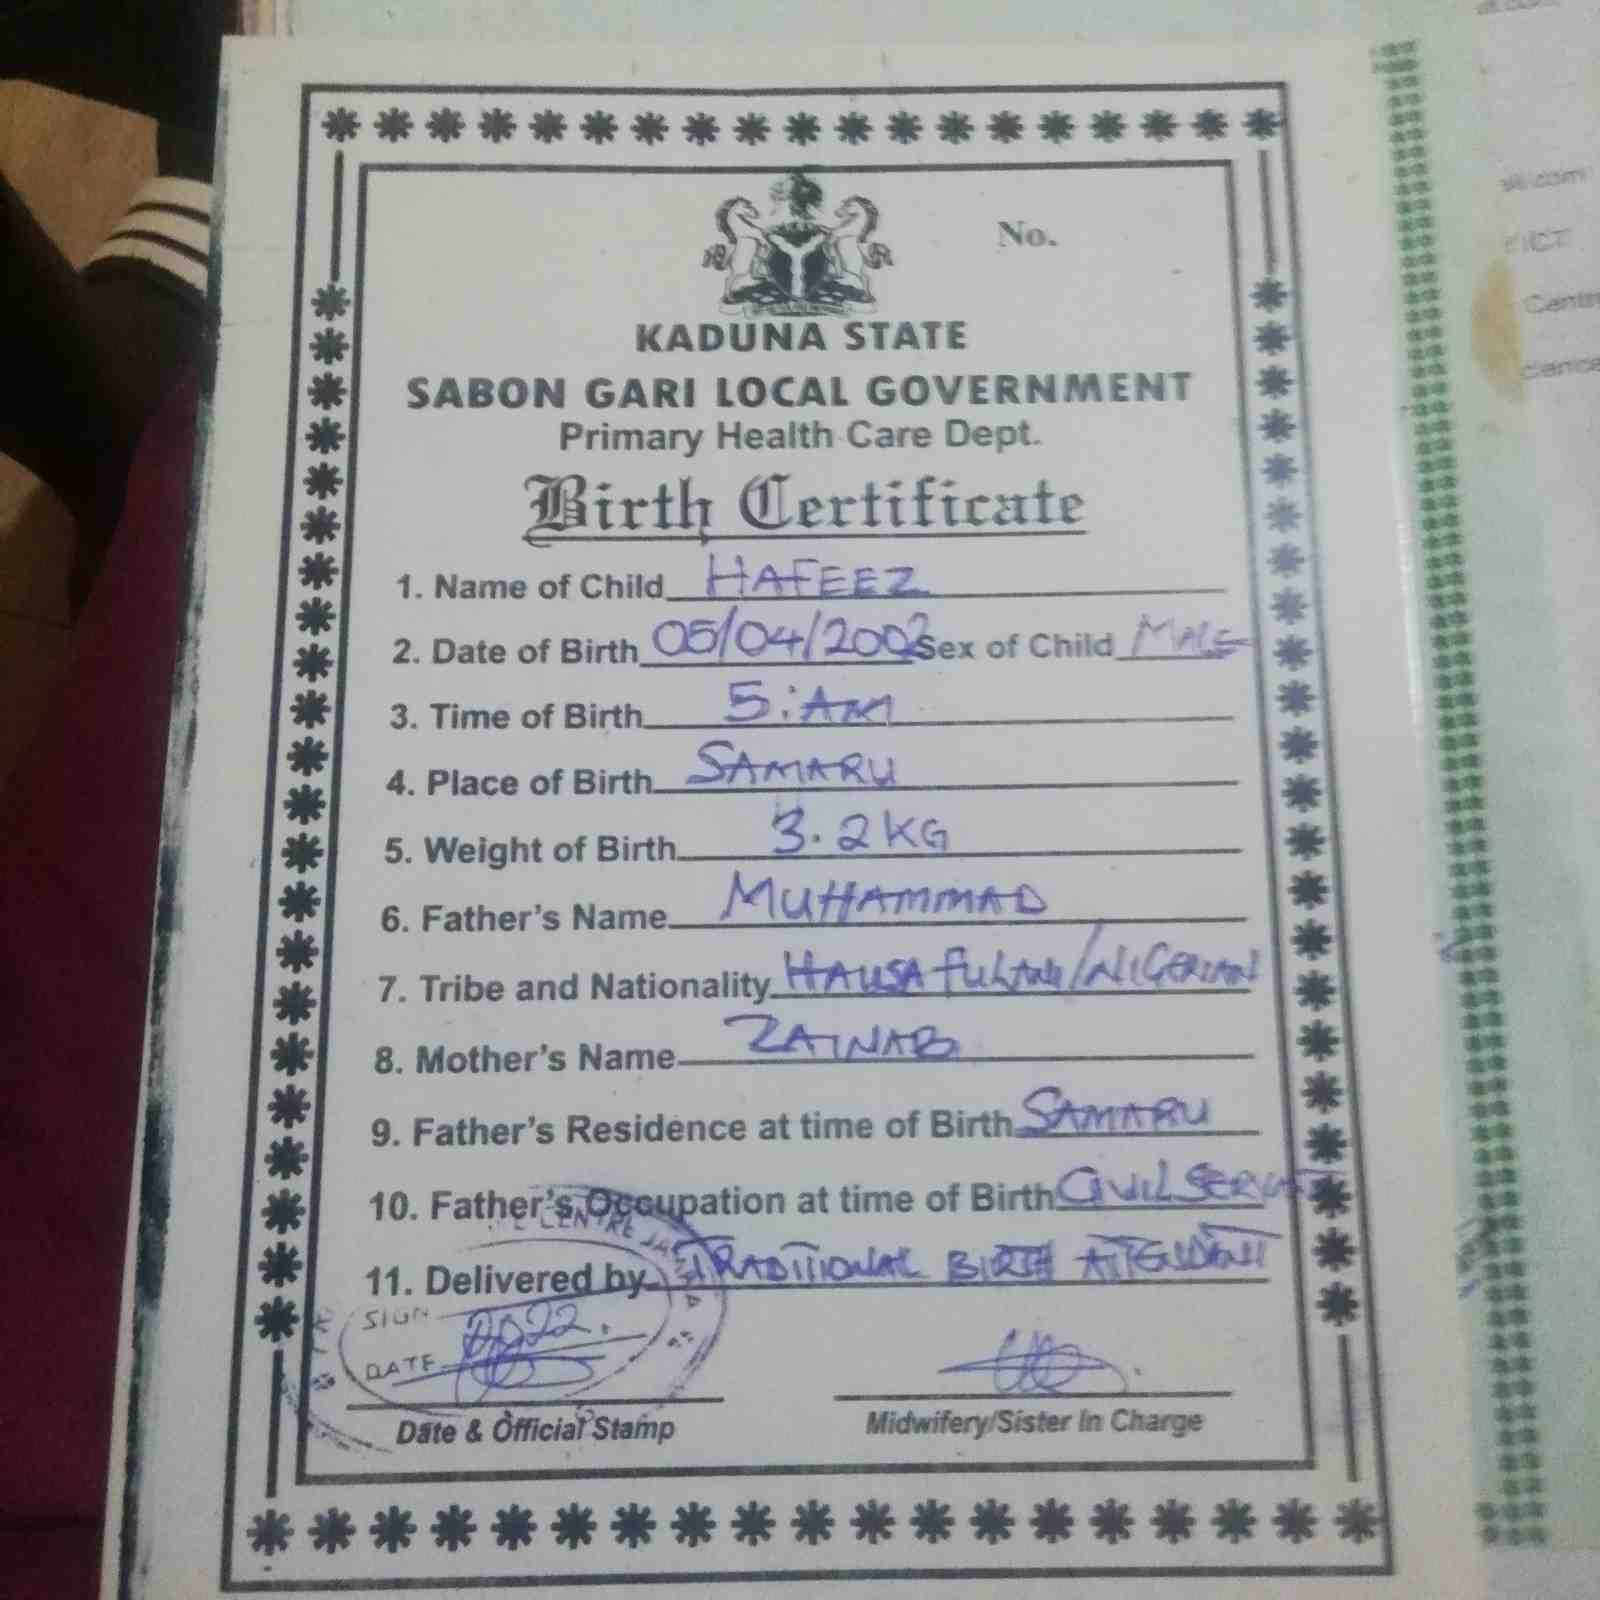 No.
KADUNA STATE
SABON GARI LOCAL GOVERNMENT
Primary Health Care Dept.
Birth Certificate
1. Name of Child HAFEEZ
2. Date of Birth 05/04/2002 Sex of Child MALE
3. Time of Birth 5:AM
4. Place of Birth SAMARU
5. Weight of Birth 3.2KG
6. Father's Name MUHAMMAD
7. Tribe and Nationality HAUSA FULANI/NIGERIAN
8. Mother's Name ZAINAB
9. Father's Residence at time of Birth SAMARU
10. Father's Occupation at time of Birth CIVIL
CENTRE
11. Delivered by TRADITIONAL BIRTH ATTENDANT
SIGN 2022.
DATE
Date & Official Stamp Midwifery/Sister In Charge